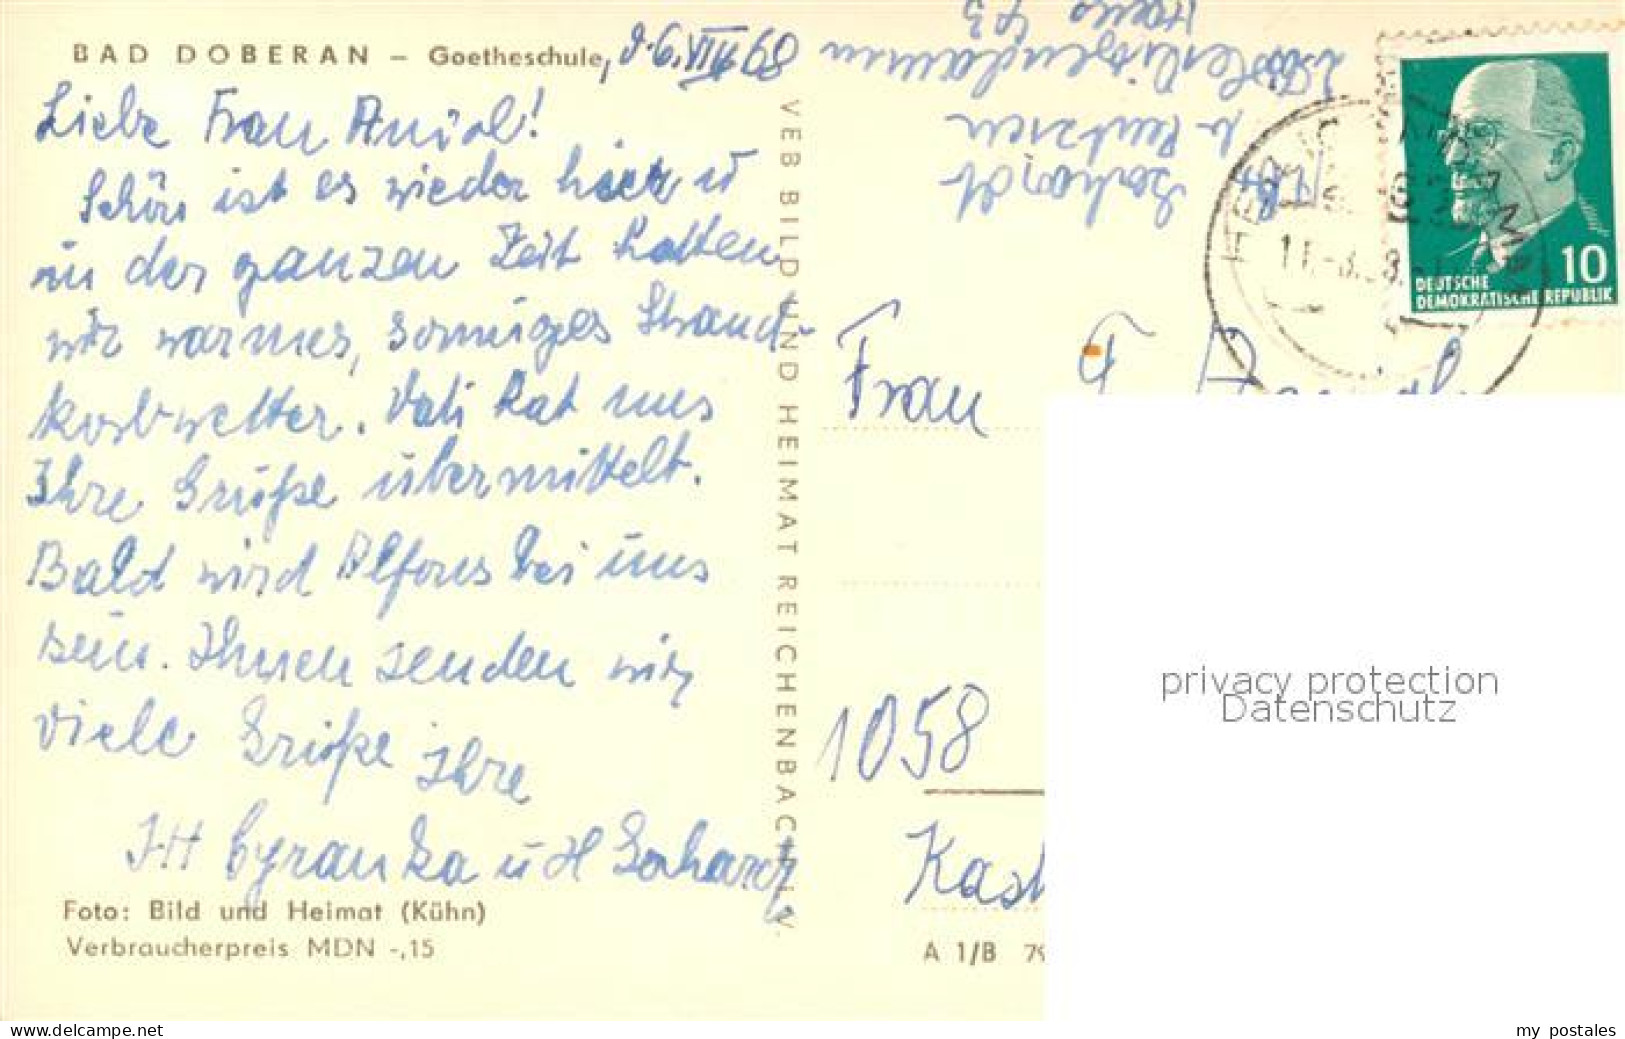 BAD DOBERAN – Goetheschule, d. 6.VIII.69
Liebe Frau Aniol!
Schön ist es wieder hier u
in der ganzen Zeit hatten
wir warmes, sonniges Strand-
korbwetter. Vati hat uns
Ihre Grüße übermittelt.
Bald wird Alfons bei uns
sein. Ihnen senden wir
viele Grüße Ihre
Cyranka u
Foto: Bild und Heimat (Kühn)
Verbraucherpreis MDN -,15
VEB BILD UND HEIMAT REICHENBACH I. V.
10
DEUTSCHE
DEMOKRATISCHE REPUBLIK
Frau
1058
A 1/B 79
privacy protection
Datenschutz
www.delcampe.net
my postales